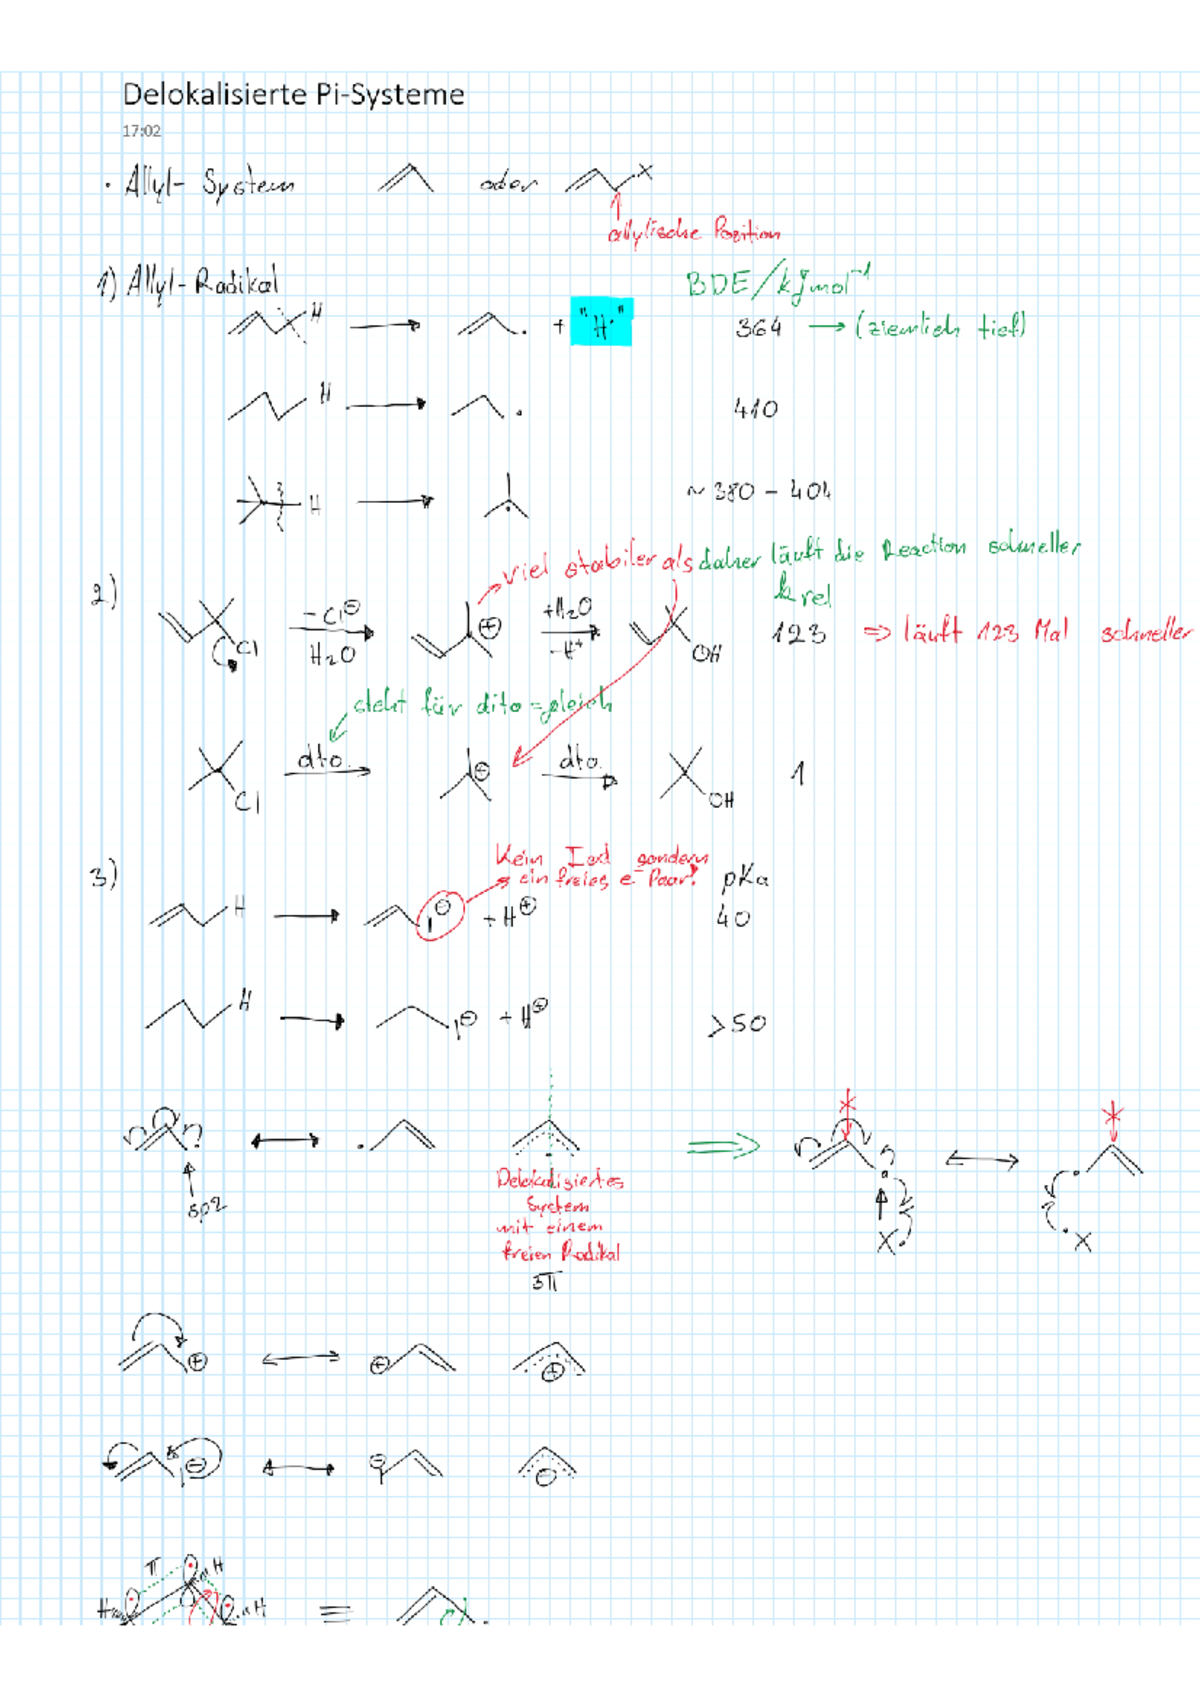 Delokalisierte Pi-Systeme
17:02
· Allyl-System oder X
allylische Position
1) Allyl-Radikal BDE/kJmol⁻¹
H + "H·" 364 → (ziemlich tief)
H 410
H ~380 - 404
viel stabiler als daher läuft die Reaction schneller
2) krel
Cl -Cl⊖ H₂O ⊕ +H₂O -H⁺ OH 123 ⇒ läuft 123 Mal schneller
steht für dito = gleich
Cl dto. ⊕ dto. OH 1
Kein Iod sondern
ein freies e⁻ Paar!
3) pKa
H ⊖ + H⊕ 40
H ⊖ + H⊕ >50
sp2
Delokalisiertes
System
mit einem
freien Radikal
3π
X· ·X
⊕ ⊕ ⊕
⊖ ⊖ ⊖
π H
H H ≡